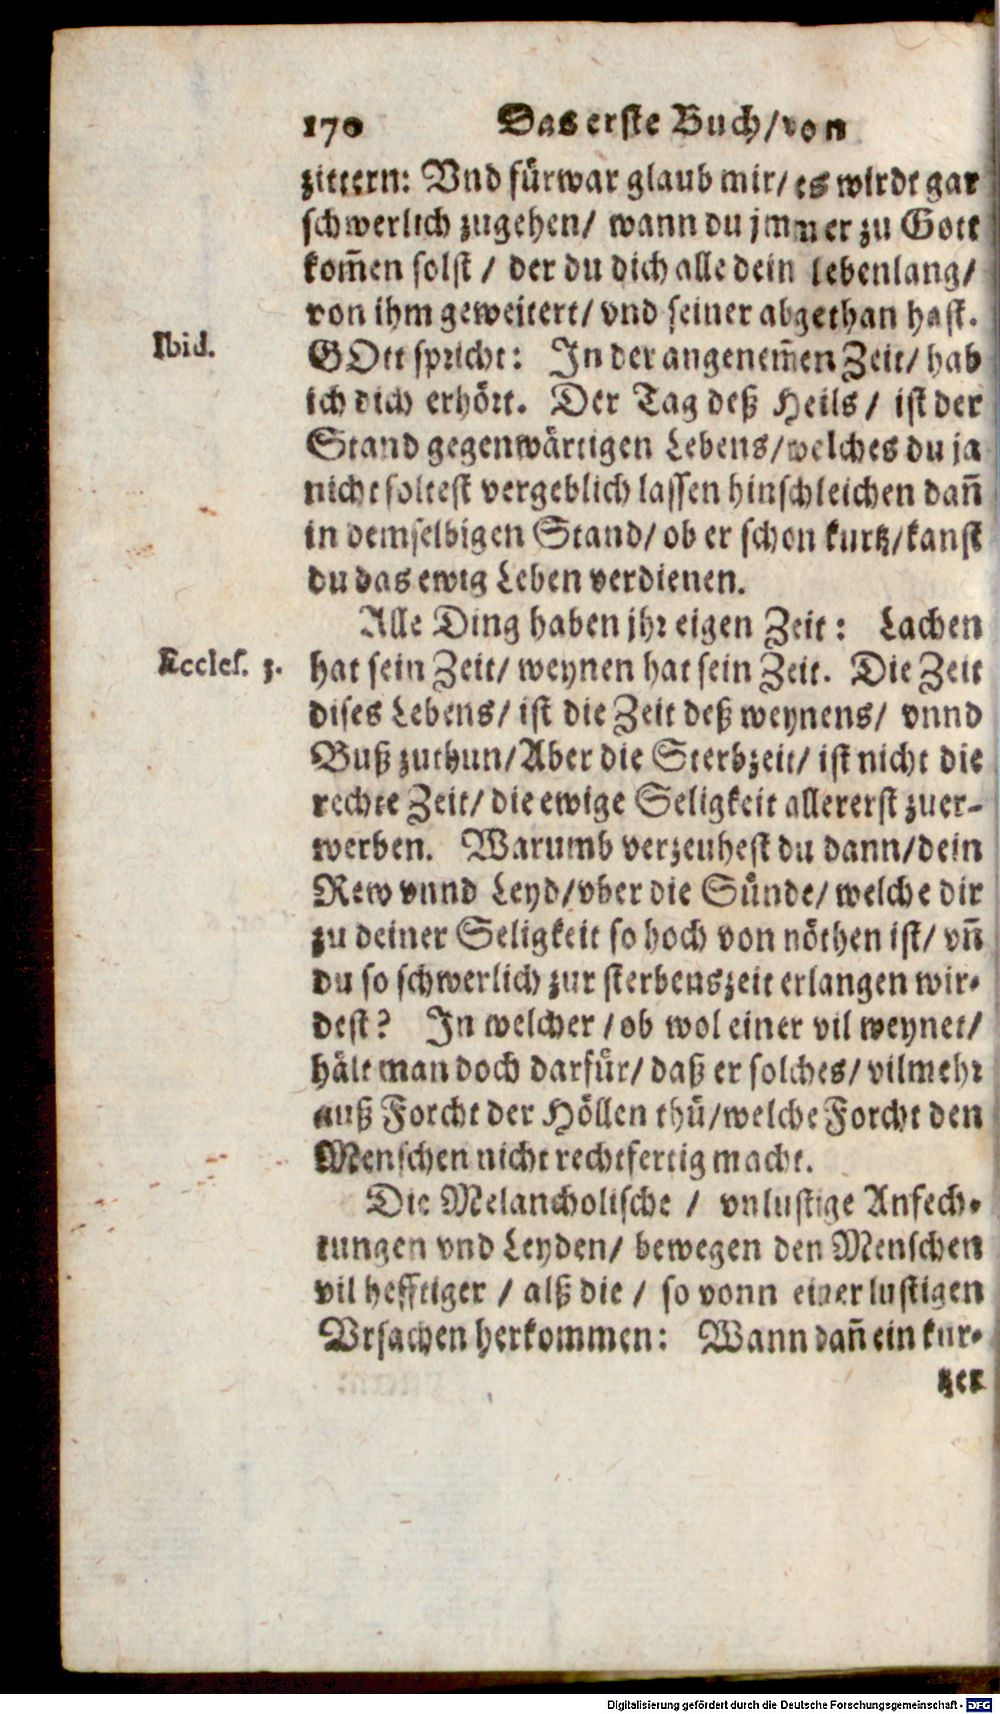 170 Das erste Buch/von
zittern: Vnd fürwar glaub mir/es wirdt gar
schwerlich zugehen/ wann du jmmer zu Gott
kom̃en solst / der du dich alle dein lebenlang/
von ihm geweitert/ vnd seiner abgethan hast.
Ibid.
GOtt spricht: In der angenem̃en Zeit/ hab
ich dich erhört. Der Tag deß Heils / ist der
Stand gegenwärtigen Lebens/welches du ja
nicht soltest vergeblich lassen hinschleichen dañ
in demselbigen Stand/ ob er schon kurtz/kanst
du das ewig Leben verdienen.
Alle Ding haben jhr eigen Zeit: Lachen
Eccles. 3.
hat sein Zeit/ weynen hat sein Zeit. Die Zeit
dises Lebens/ ist die Zeit deß weynens/ vnnd
Buß zuthun/Aber die Sterbzeit/ ist nicht die
rechte Zeit/ die ewige Seligkeit allererst zuer-
werben. Warumb verzeuhest du dann/dein
Rew vnnd Leyd/vber die Sünde/ welche dir
zu deiner Seligkeit so hoch von nöthen ist/ vñ
du so schwerlich zur sterbenszeit erlangen wir-
dest? In welcher / ob wol einer vil weynet/
hält man doch darfür/ daß er solches/ vilmehr
auß Forcht der Höllen thů/welche Forcht den
Menschen nicht rechtfertig macht.
Die Melancholische / vnlustige Anfech-
tungen vnd Leyden/ bewegen den Menschen
vil hefftiger / alß die / so vonn einer lustigen
Vrsachen herkommen: Wann dañ ein kur-
tzer
Digitalisierung gefördert durch die Deutsche Forschungsgemeinschaft - DFG